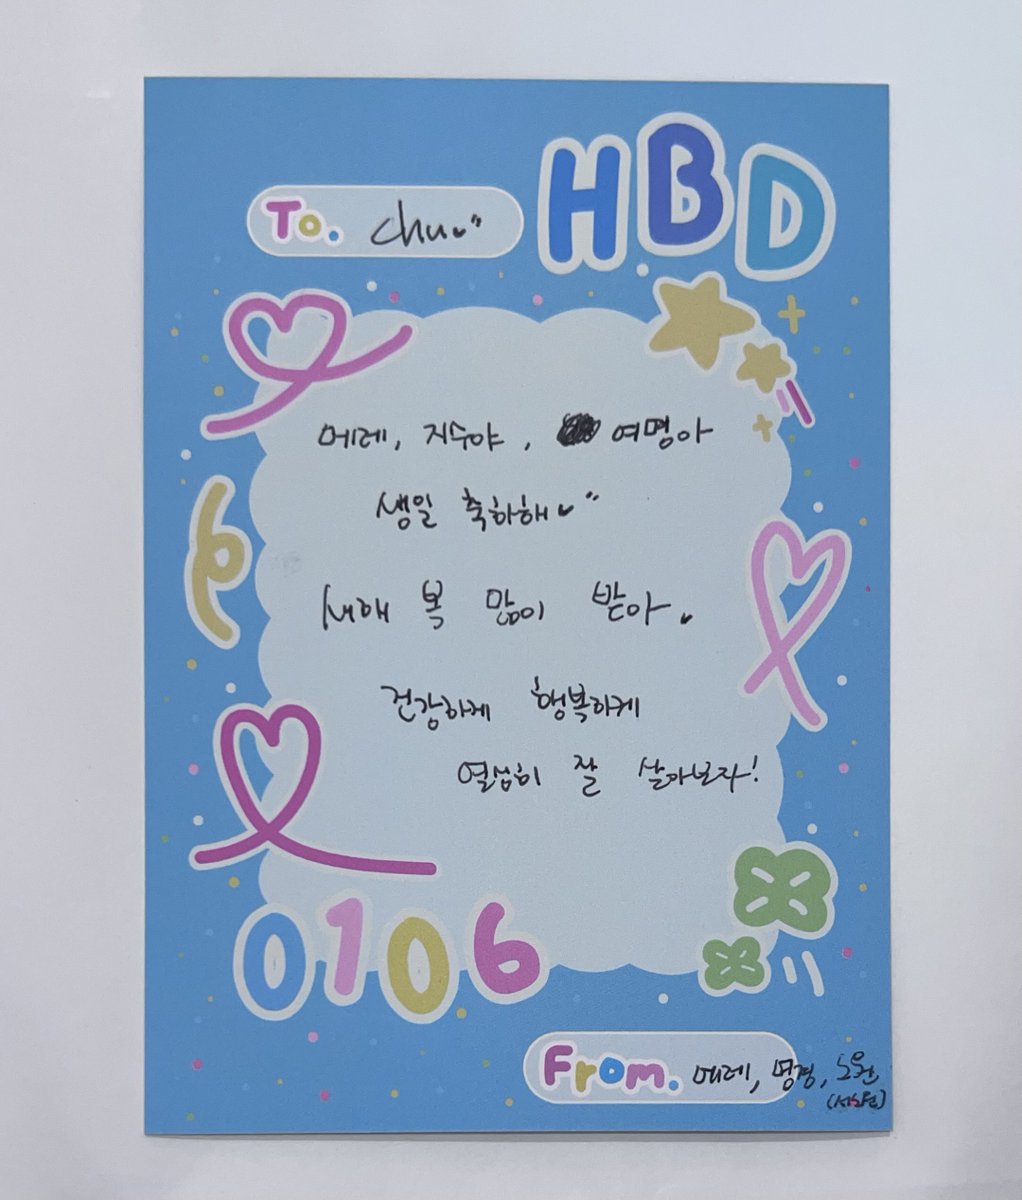 HBD
To. chu
예레, 지수야, 여명아
생일 축하해
새해 복 많이 받아
건강하게 행복하게
열심히 잘 살아보자!
0106
From. 예레, 명경, 노원